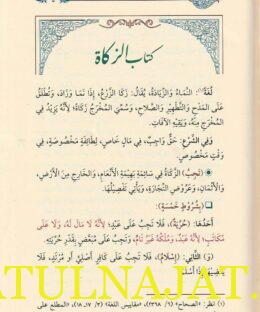 كتاب الزكاة
لُغَةً(١): النَّمَاءُ وَالزِّيَادَةُ، يُقَالُ: زَكَا الزَّرْعُ، إِذَا نَمَا وَزَادَ، وَتُطْلَقُ
عَلَى المَدْحِ وَالتَّطْهِيرِ وَالصَّلَاحِ، وَسُمِّيَ المُخْرَجُ زَكَاةً؛ لِأَنَّهُ يَزِيدُ فِي
المُخْرَجِ مِنْهُ، وَيَقِيهِ الآفَاتِ.
وَفِي الشَّرْعِ: حَقٌّ وَاجِبٌ، فِي مَالٍ خَاصٍّ، لِطَائِفَةٍ مَخْصُوصَةٍ، فِي
وَقْتٍ مَخْصُوصٍ.
(تَجِبُ) الزَّكَاةُ فِي سَائِمَةِ بَهِيمَةِ الأَنْعَامِ، وَالخَارِجِ مِنَ الأَرْضِ،
وَالأَثْمَانِ، وَعُرُوضِ التِّجَارَةِ، وَيَأْتِي تَفْصِيلُهَا.
(بِشُرُوطٍ خَمْسَةٍ):
أَحَدُهَا: (حُرِّيَّةٌ)، فَلَا تَجِبُ عَلَى عَبْدٍ؛ لِأَنَّهُ لَا مَالَ لَهُ، وَلَا عَلَى
مُكَاتَبٍ؛ لِأَنَّهُ عَبْدٌ، وَمُلْكُهُ غَيْرُ تَامٍّ، وَتَجِبُ عَلَى مُبَعَّضٍ بِقَدْرِ حُرِّيَّتِهِ.
(وَ) الثَّانِي: (إِسْلَامٌ)، فَلَا تَجِبُ عَلَى كَافِرٍ أَصْلِيٍّ أَوْ مُرْتَدٍّ، فَلَا
ATULNAJAT.
(١) انظر: «الصحاح» (٦/ ٢٣٦٨)، «مقاييس اللغة» (٣/ ١٧، ١٨)، «المطلع على